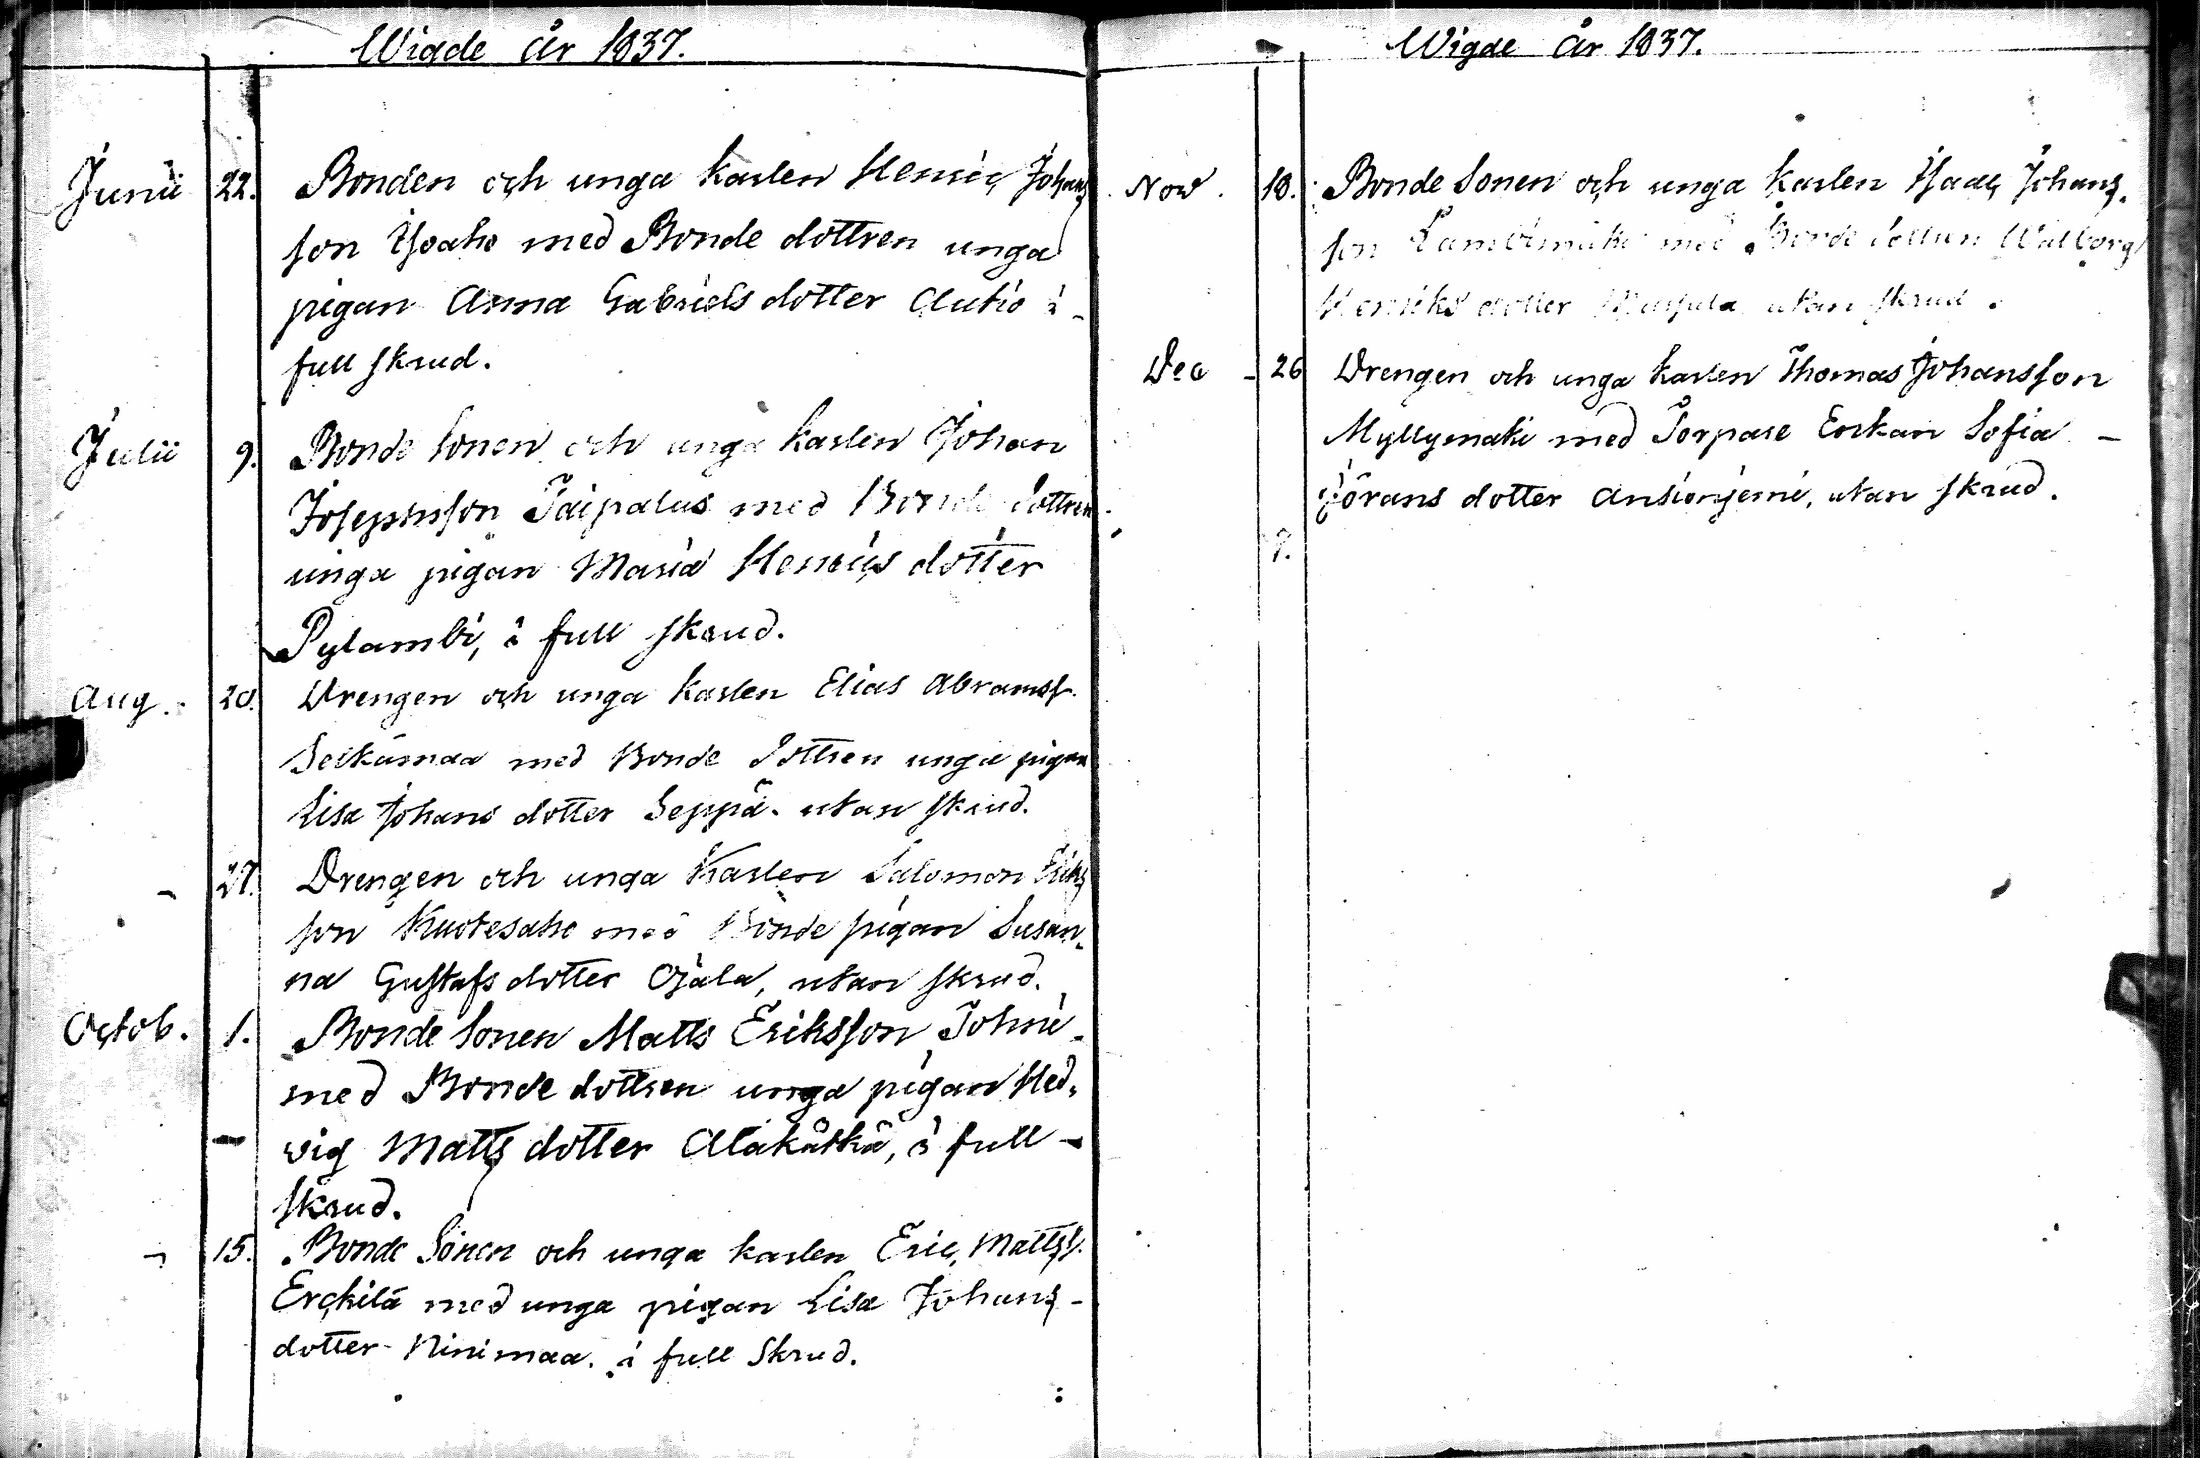 Wigde År 1837.
Junii 22. Bonden och unga karlen Henric Johans
son Isoaho med Bonde dottren unga
pigan Anna Gabriels dotter Autio i
full skrud.
Julii 9. Bonde Sonen och unga karlen Johan
Josephsson Taipalus med Bonde dottren
unga pigan Maria Henrics dotter
Pylambi, i full skrud.
Aug. 20. Drengen och unga karlen Elias Abramss.
Selkämaa med Bonde dottren unga pigan
Lisa Johans dotter Seppä. utan skrud.
- 27. Drengen och unga Karlen Salomon Eriks
son Kuotesaho med Bonde pigan Susan-
na Gustafs dotter Ojala, utan skrud.
Octob. 1. Bonde Sonen Matts Eriksson Tohni
med Bonde dottren unga pigan Hed-
vig Matts dotter Alakätkä, i full -
skrud.
- 15. Bonde Sonen och unga karlen Eric Mattss.
Erckilä med unga pigan Lisa Johans-
dotter Ninimaa. i full Skrud.
Wigde År 1837.
Nov. 18. Bonde Sonen och unga karlen Isaac Johans-
son Lambimäki med Bonde dottren Walborg
Henriks dotter utan skrud.
Dec - 26 Drengen och unga karlen Thomas Johansson
Myllymäki med Torpare Enkan Sofia -
Görans dotter Ansionjemi, utan skrud.